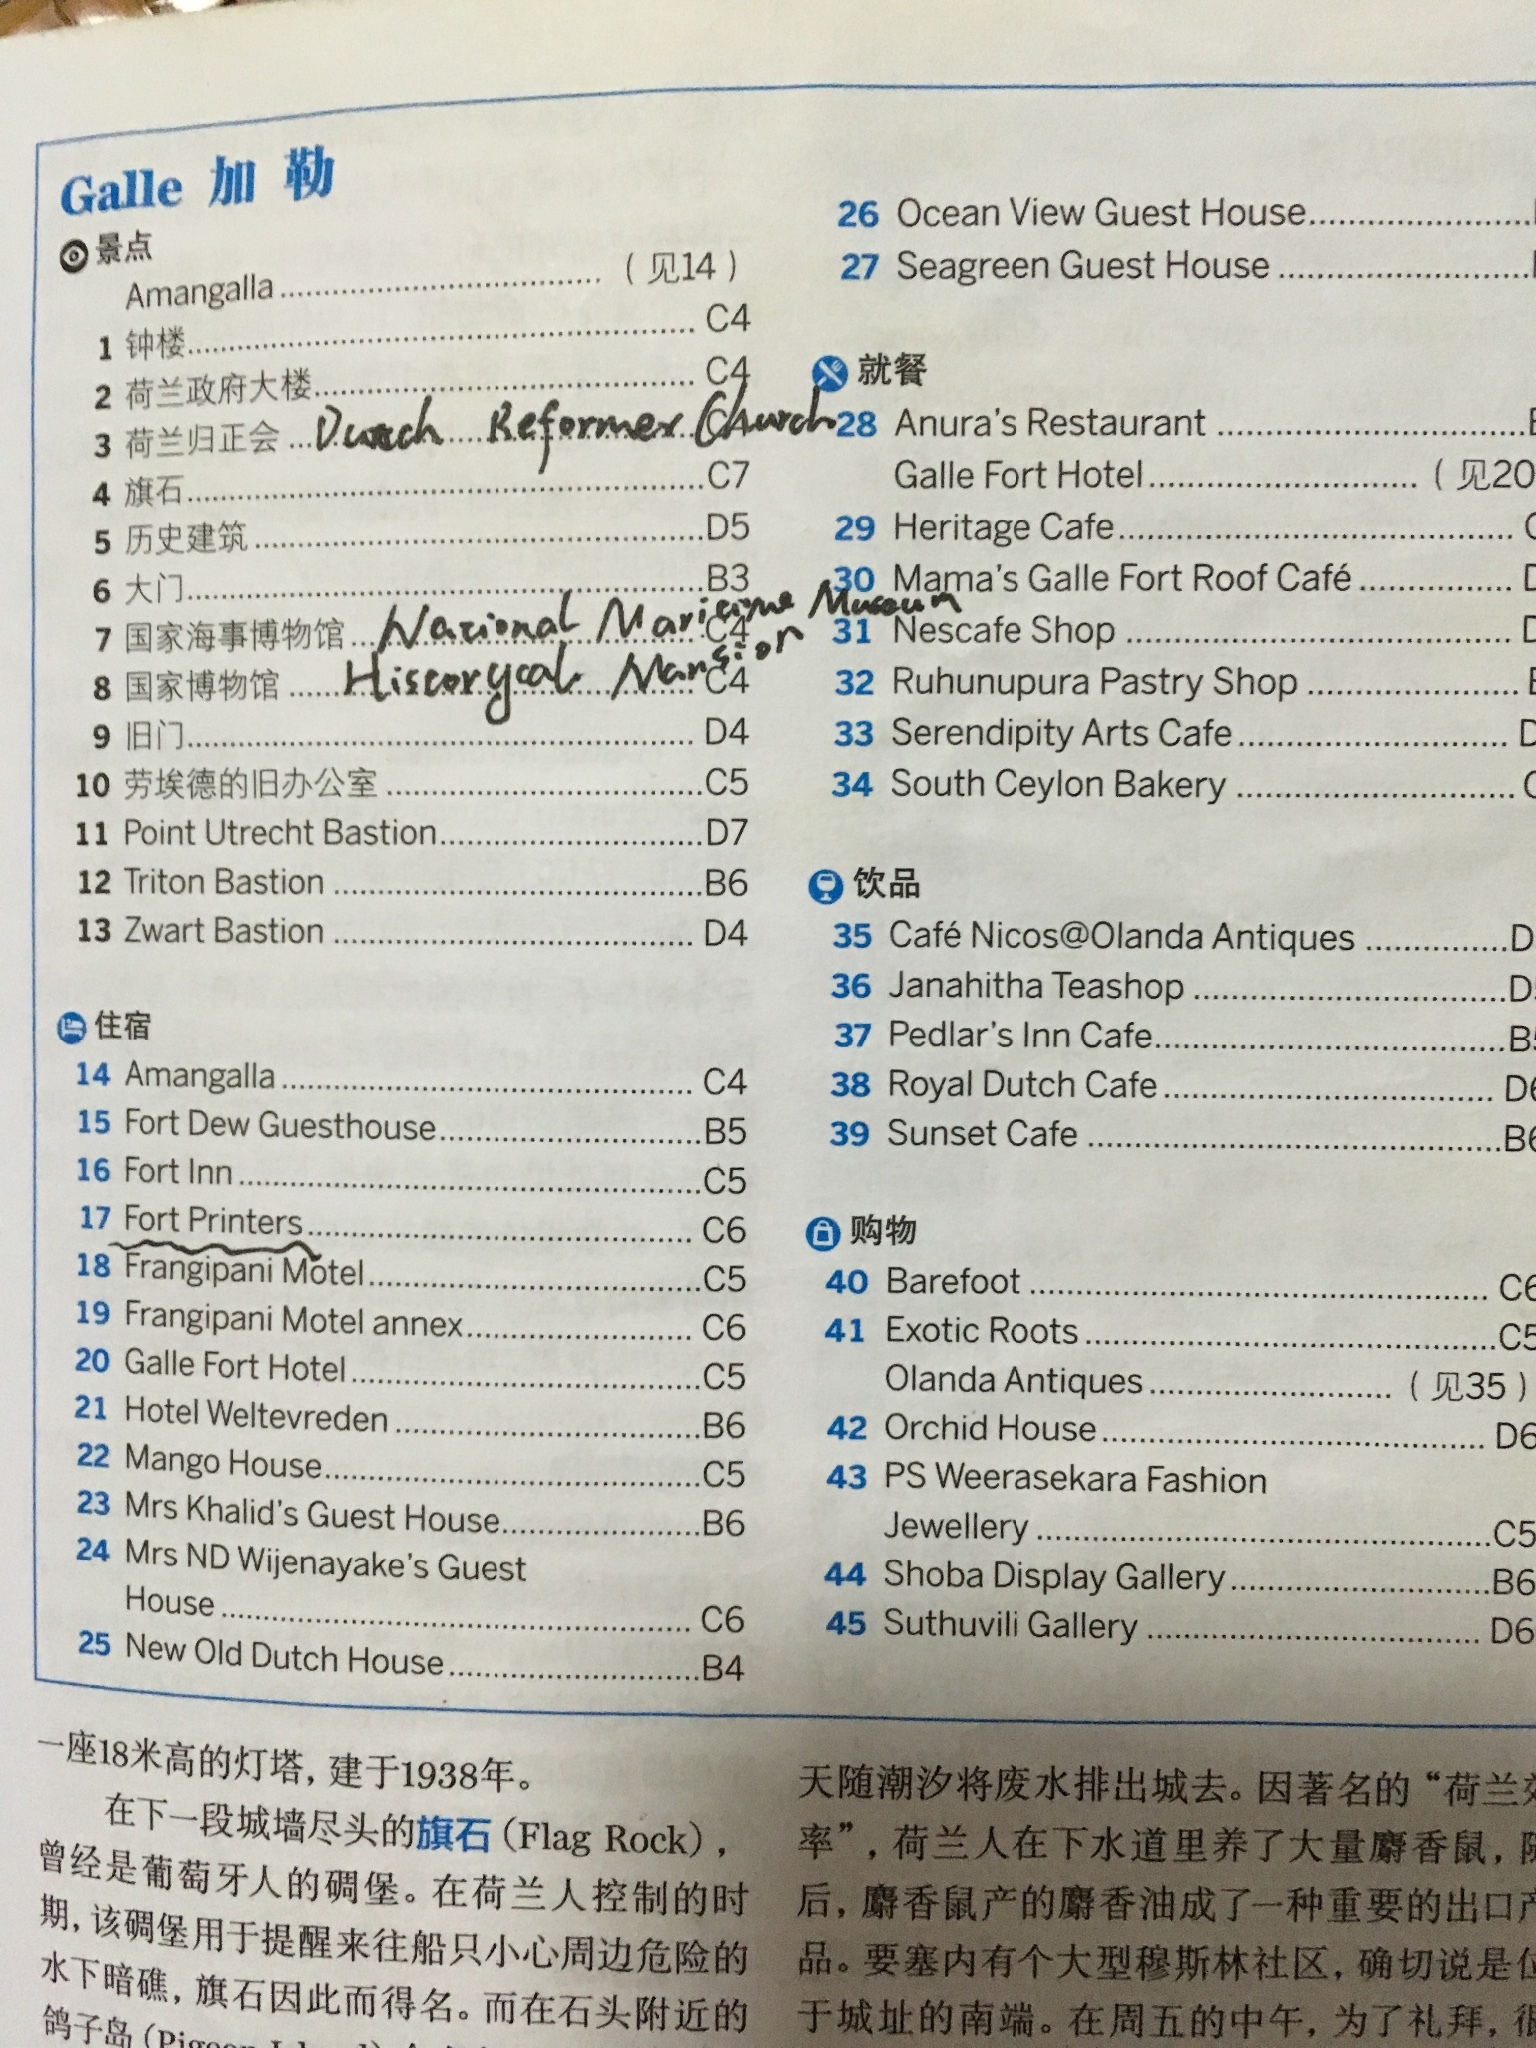 Galle 加勒
景点
Amangalla (见14)
1 钟楼 C4
2 荷兰政府大楼 C4
3 荷兰归正会 C4
Church
4 旗石 C7
5 历史建筑 D5
6 大门 B3
7 国家海事博物馆 C4
National Maritime Museum
8 国家博物馆 C4
Mansion
9 旧门 D4
10 劳埃德的旧办公室 C5
11 Point Utrecht Bastion D7
12 Triton Bastion B6
13 Zwart Bastion D4
住宿
14 Amangalla C4
15 Fort Dew Guesthouse B5
16 Fort Inn C5
17 Fort Printers C6
18 Frangipani Motel C5
19 Frangipani Motel annex C6
20 Galle Fort Hotel C5
21 Hotel Weltevreden B6
22 Mango House C5
23 Mrs Khalid's Guest House B6
24 Mrs ND Wijenayake's Guest
House C6
25 New Old Dutch House B4
26 Ocean View Guest House
27 Seagreen Guest House
就餐
28 Anura's Restaurant
Galle Fort Hotel (见20
29 Heritage Cafe
30 Mama's Galle Fort Roof Café
31 Nescafe Shop
32 Ruhunupura Pastry Shop
33 Serendipity Arts Cafe
34 South Ceylon Bakery
饮品
35 Café Nicos@Olanda Antiques D
36 Janahitha Teashop D
37 Pedlar's Inn Cafe B5
38 Royal Dutch Cafe D6
39 Sunset Cafe B6
购物
40 Barefoot C6
41 Exotic Roots C5
Olanda Antiques (见35)
42 Orchid House D6
43 PS Weerasekara Fashion
Jewellery C5
44 Shoba Display Gallery B6
45 Suthuvili Gallery D6
一座18米高的灯塔，建于1938年。
在下一段城墙尽头的旗石（Flag Rock），
曾经是葡萄牙人的碉堡。在荷兰人控制的时
期，该碉堡用于提醒来往船只小心周边危险的
水下暗礁，旗石因此而得名。而在石头附近的
鸽子岛（Pigeon Island）
天随潮汐将废水排出城去。因著名的“荷兰效
率”，荷兰人在下水道里养了大量麝香鼠，随
后，麝香鼠产的麝香油成了一种重要的出口产
品。要塞内有个大型穆斯林社区，确切说是位
于城址的南端。在周五的中午，为了礼拜，很